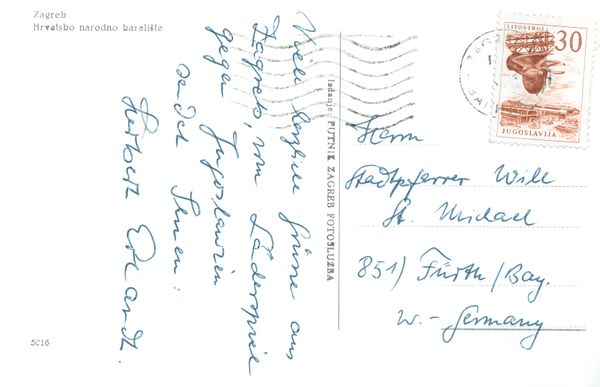 Zagreb
Hrvatsko narodno kazalište
Viele herzliche Grüsse aus
Zagreb, vom Länderspiel
gegen Jugoslawien
sendet Ihnen:
Herbert Erhardt.
Izdanje: PUTNIK ZAGREB FOTOSLUŽBA
LITOSTROJ
30
JUGOSLAVIJA
Herrn
Stadtpfarrer Will
St. Michael
851) Fürth/Bay.
W.- Germany
5016